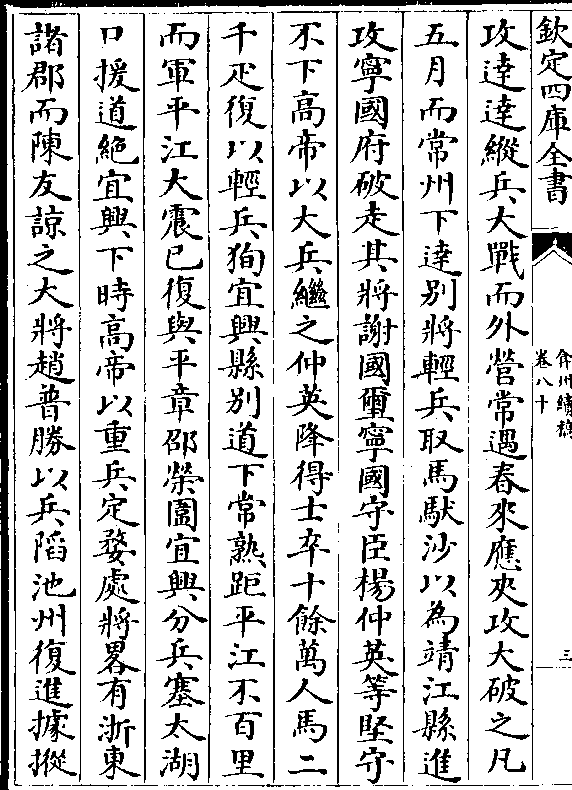 欽定四庫全書
弇州續稿
卷八十
三
攻達達縱兵大戰而外營常遇春來應夾攻大破之凡
五月而常州下達别將輕兵取馬馱沙以為靖江縣進
攻寧國府破走其將謝國璽寧國守臣楊仲英等堅守
不下高帝以大兵繼之仲英降得士卒十餘萬人馬二
千疋復以輕兵狥宜興縣别道下常熟距平江不百里
而軍平江大震已復與平章邵榮圍宜興分兵塞太湖
口援道絶宜興下時高帝以重兵定婺處將畧有浙東
諸郡而陳友諒之大將趙普勝以兵䧟池州復進據摐